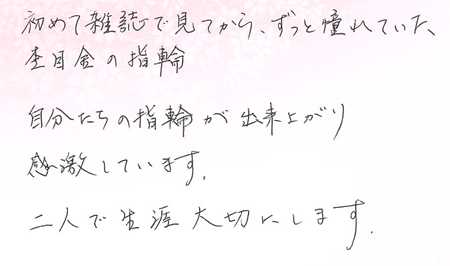 初めて雑誌で見てから、ずっと憧れていた、
杢目金の指輪
自分たちの指輪が出来上がり
感激しています。
二人で生涯大切にします。